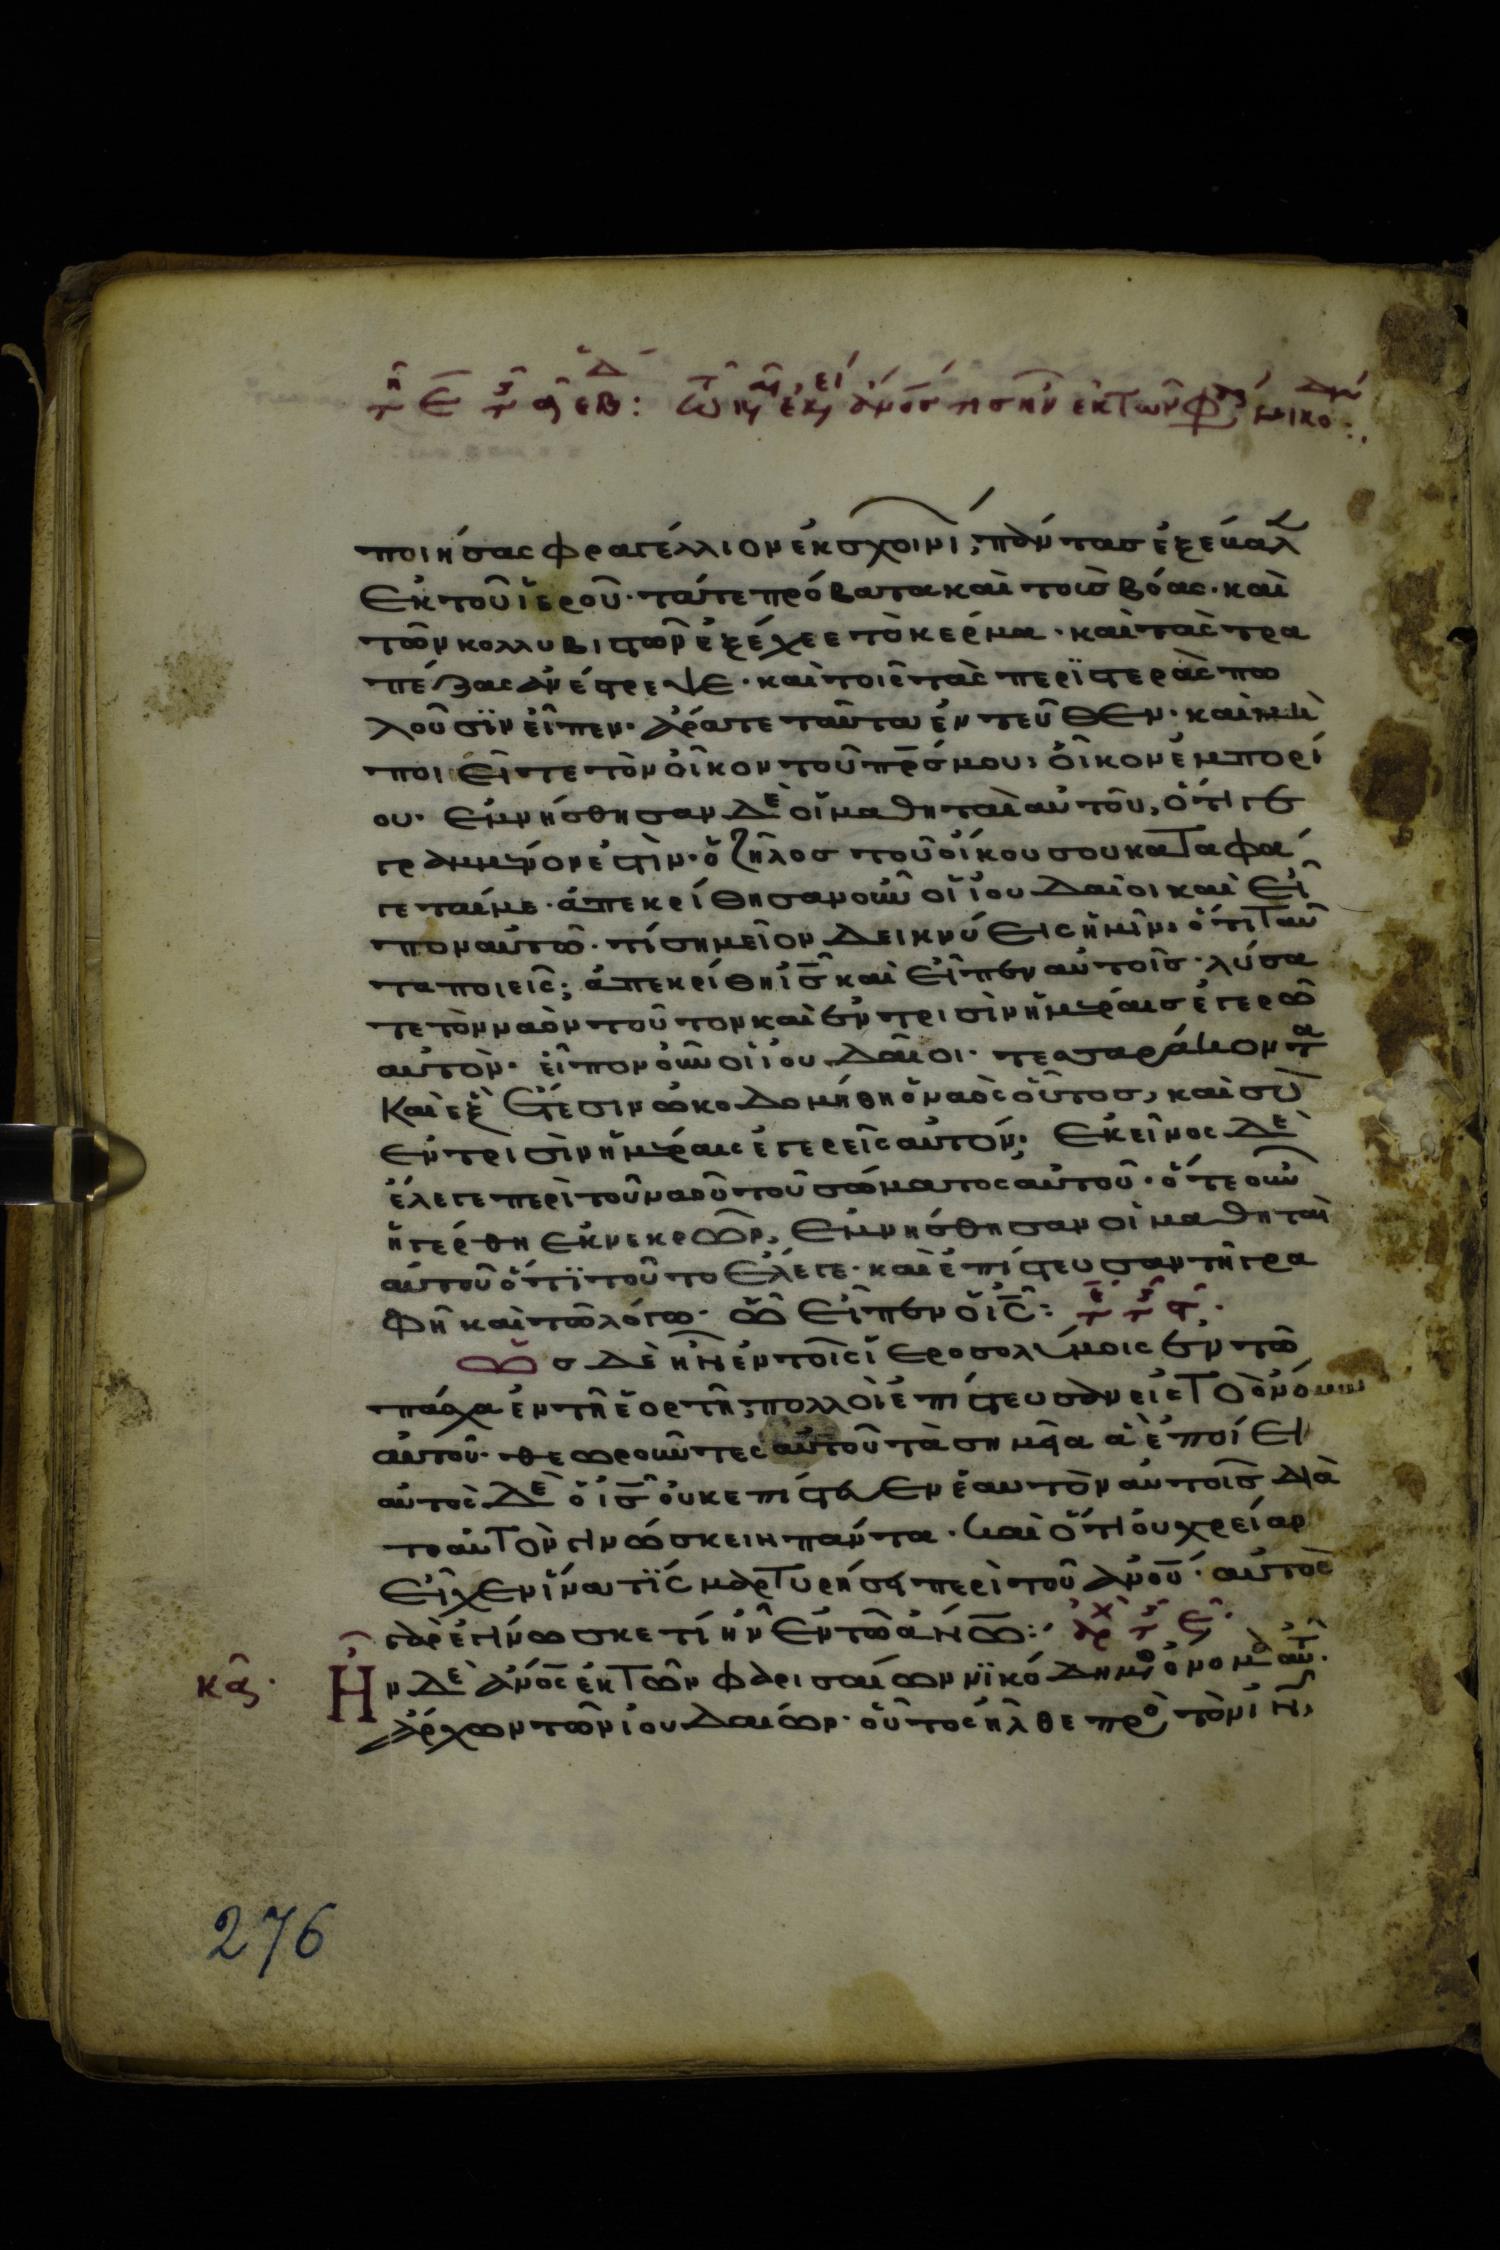 ποιήσας φραγέλλιον ἐκ σχοινί, πάντας ἐξέβαλ
ἐκ τοῦ ἱεροῦ· τάτε πρόβατα καὶ τοὺς βόας· καὶ
τῶν κολλυβιστῶν ἐξέχεε τὸ κέρμα· καὶ τὰς τρα
πέζας ἀνέστρεψε· καὶ τοῖς τὰς περϊστερὰς πω
λοῦσϊν εἶπεν· ἄρατε ταῦτα ἐντεῦθεν· καὶ μὴ
ποιεῖτε τὸν οἶκον τοῦ πρς μου, οἶκον ἐμπορί
ου· ἐμνήσθησαν δὲ οἱ μαθηταὶ αὐτοῦ, ὅτι γε
γραμμένον ἐστίν· ὁ ζῆλος τοῦ οἴκου σου καταφά
γεταί με· ἀπεκρίθησαν οὖν οἱ ἰουδαῖοι καὶ εἶ
πον αὐτῶ· τί σημεῖον δεικνύεις ἡμῖν, ὅτι ταῦ
τα ποιεῖς; ἀπεκρίθη ις καὶ εἶπεν αὐτοῖς· λύσα
τε τὸν ναὸν τοῦτον καὶ ἐν τρισὶν ἡμέραις ἐγερῶ
αὐτόν· εἶπον οὖν οἱ ἰουδαῖοι· τεσσαράκοντα
καὶ ἐξ ἔτεσιν ὠκοδομήθη ὁ ναὸς οὗτος, καὶ σὺ
ἐν τρισὶν ἡμέραις ἐγερεῖς αὐτόν; ἐκεῖνος δὲ
ἔλεγε περὶ τοῦ ναοῦ τοῦ σώματος αὐτοῦ· ὅτε οὖν
ἠγέρθη ἐκ νεκρῶν, ἐμνήσθησαν οἱ μαθηταὶ
αὐτοῦ ὅτϊ τοῦτο ἔλεγε· καὶ ἐπίστευσαν τῆ γρα
φῆ καὶ τῶ λόγω· ὧ εἶπεν ὁ ις:
ὡς δὲ ἦν ἐν τοῖς ἱεροσολύμοις ἐν τῶ
πάσχα ἐν τῆ ἑορτῆ, πολλοὶ ἐπίστευσαν εἰς τὸ ὄνομα
αὐτοῦ· θεωροῦντες αὐτοῦ τὰ σημεῖα ἃ ἐποίει
αὐτὸς δὲ ὁ ις οὐκ ἐπίστευεν ἑαυτὸν αὐτοῖς διὰ
τὸ αὐτὸν γινώσκειν πάντα· καὶ ὅτι οὐ χρείαν
εἶχεν ἵνα τϊς μαρτυρήση περὶ τοῦ ἀνου· αὐτὸς
γὰρ ἐγίνωσκε τί ἦν ἐν τῶ ἀνω:
κα ἦν δὲ ἀνος ἐκ τῶν φαρισαίων νϊκόδημος ὄνομα αὐτ·
ἄρχων τῶν ἰουδαίων· οὗτος ἦλθε πρὸ τὸν ιν,
276